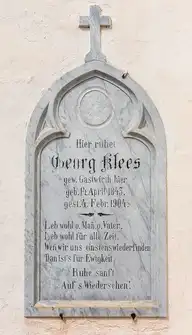 Hier ruhet
Georg Klees
gew. Gastwirth hier
geb. 12. April 1843,
gest. 4. Febr. 1904.
Leb wohl o. Man, o. Vater,
Leb wohl für alle Zeit,
Wen wir uns einstens wiederfinden
Dan ist's für Ewigkeit
Ruhe sanft
Auf's Wiedersehen!